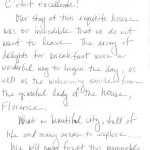 C'est excellente!
Our stay at this exquisite house
was so incredible that we do not
want to leave. The array of
delights for breakfast were a
wonderful way to begin the day, as
well as the welcoming smiles from
the graceful lady of the house,
Florence.
What a beautiful city, full of
life and many areas to explore....
We will not forget this memorable